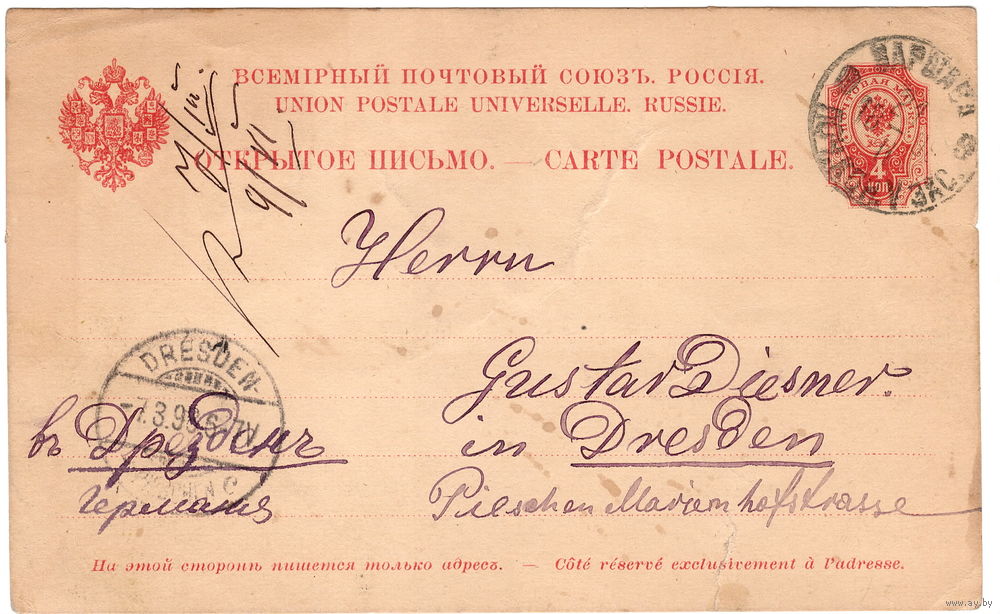 ВСЕМІРНЫЙ ПОЧТОВЫЙ СОЮЗЪ. РОССІЯ.
UNION POSTALE UNIVERSELLE. RUSSIE.
ОТКРЫТОЕ ПИСЬМО. — CARTE POSTALE.
ПОЧТОВАЯ МАРКА
4
КОП
ВАРШАВА
9/III
Herrn
Gustav Diesner.
in Dresden
Pieschen Marienhofstrasse
DRESDEN
7.3.9
въ Дрезденъ
Германія
На этой сторонѣ пишется только адресъ. — Côté réservé exclusivement à l'adresse.
www.ay.by